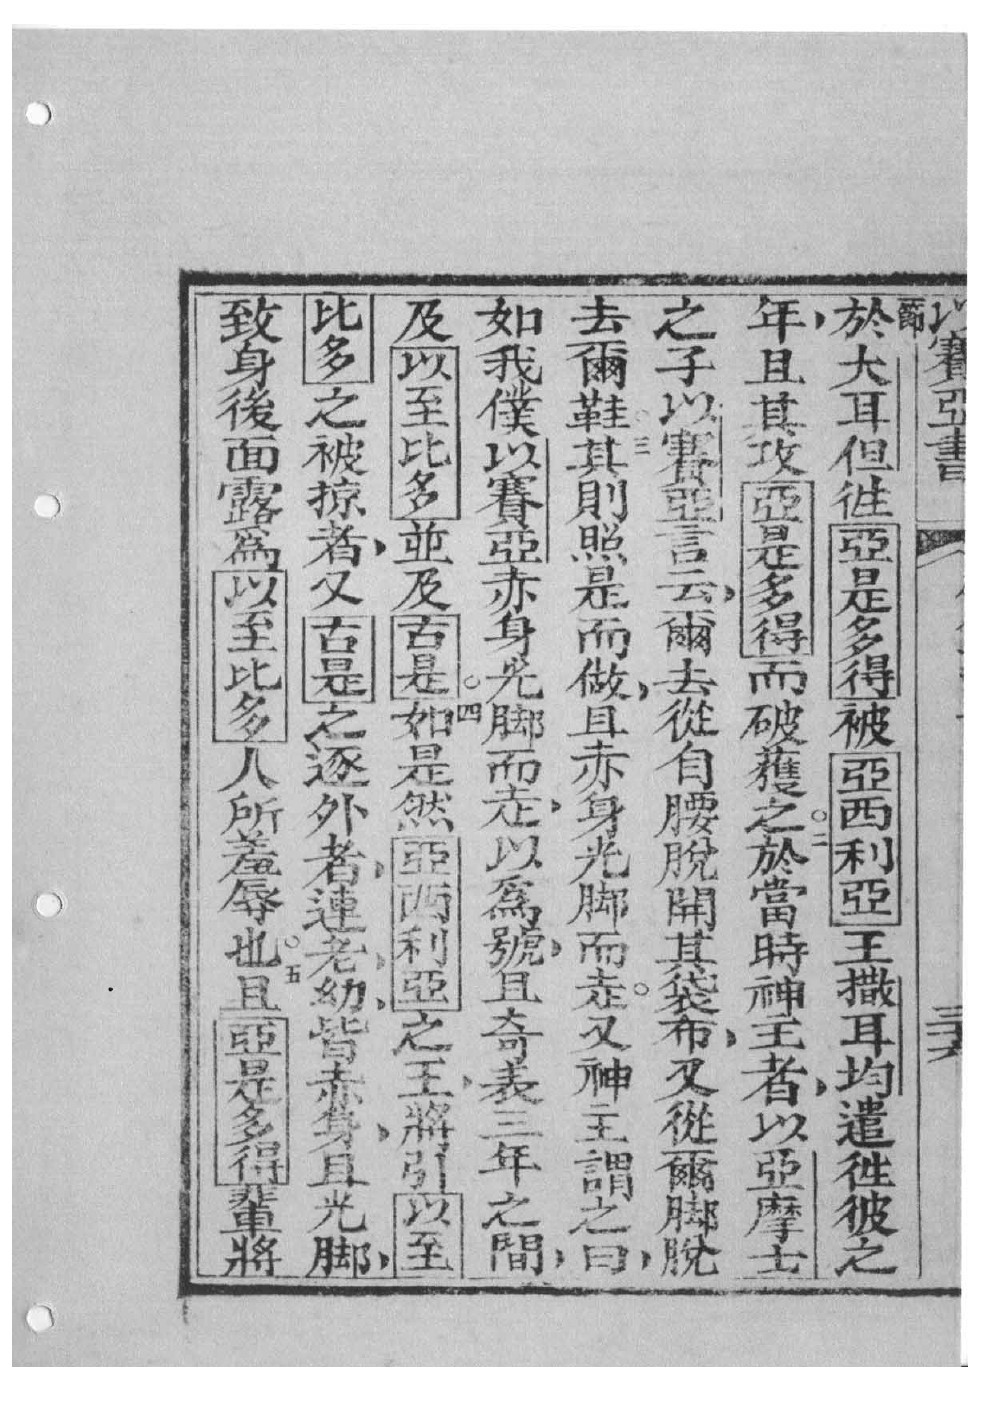 以賽亞書
節
三六
於大耳但徃亞是多得被亞西利亞王撒耳均遣徃彼之
年，且其攻亞是多得而破獲之○二於當時神主者，以亞摩士
之子以賽亞言云，爾去從自腰脫開其袋布，又從爾脚脫
去爾鞋○三其則照是而做，且赤身光脚而走○又神主謂之曰，
如我僕以賽亞赤身光脚而走，以爲號，且奇表三年之間，
及以至比多並及古是○四如是然亞西利亞之王，將引以至
比多之被掠者，又古是之逐外者，連老，幼，皆赤身，且光脚，
致身後面露爲以至比多人所羞辱也○五且亞是多得輩將